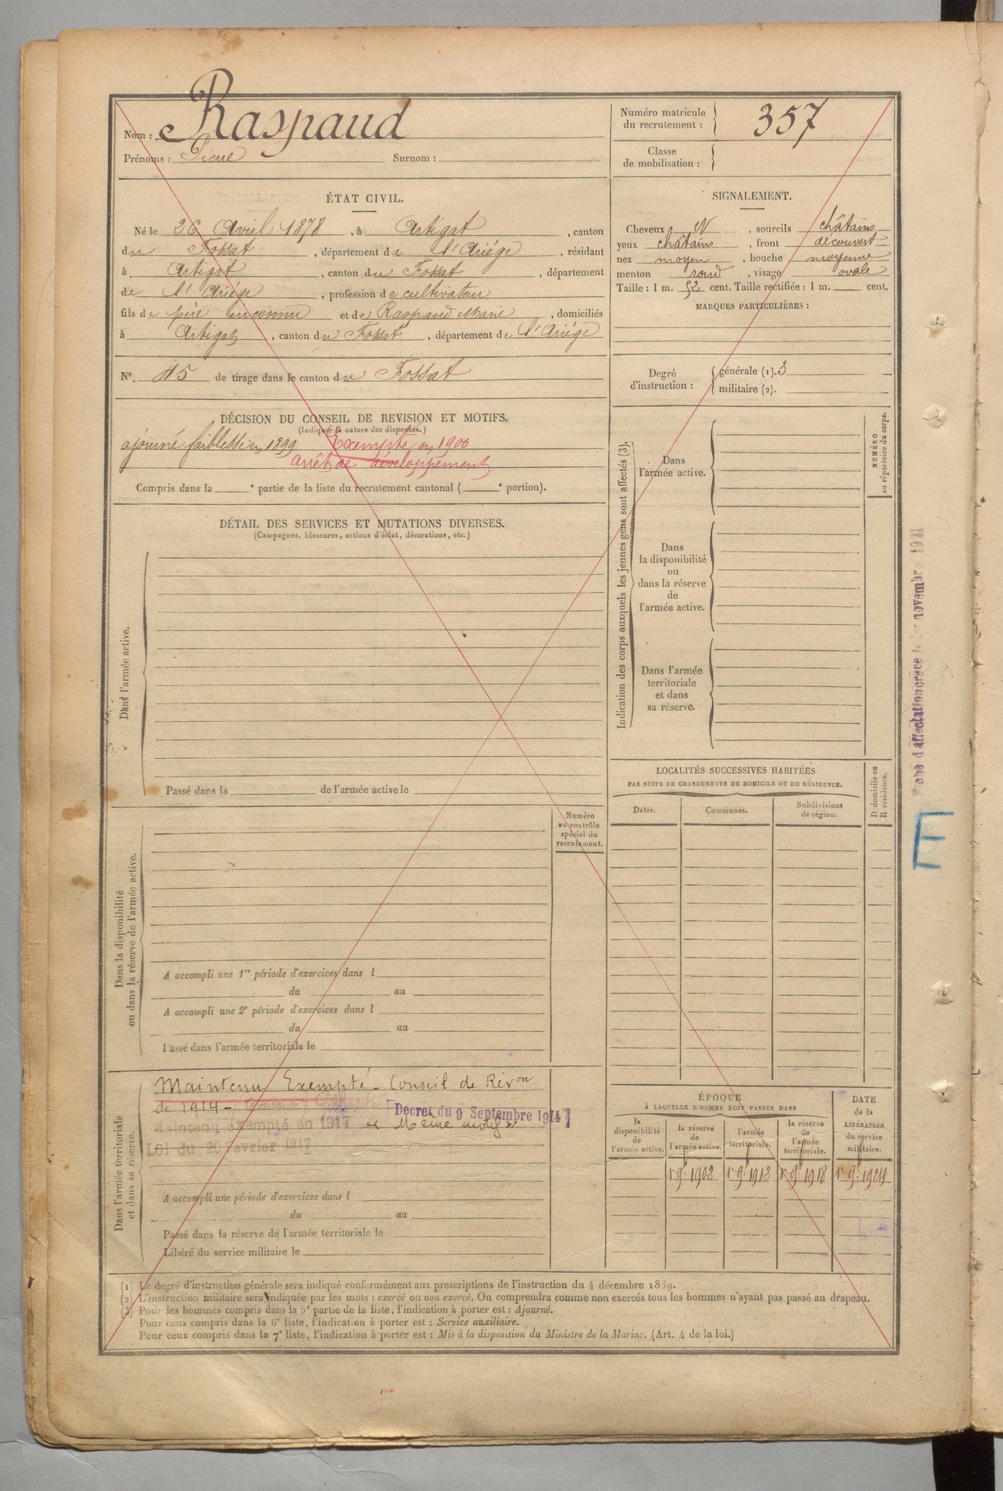 Nom : Raspaud
Prénoms : Pierre Surnom :
Numéro matricule du recrutement : 357
Classe de mobilisation :
ÉTAT CIVIL.
Né le 26 Avril 1878, à Artigat, canton
du Fossat, département de l'Ariége, résidant
à Artigat, canton du Fossat, département
de l'Ariége, profession de cultivateur
fils de père inconnu et de Raspaud Marie, domiciliés
à Artigat, canton du Fossat, département de l'Ariége
N° 45 de tirage dans le canton du Fossat
SIGNALEMENT.
Cheveux N, sourcils châtains
yeux châtains, front découvert
nez moyen, bouche moyenne
menton rond, visage ovale
Taille : 1 m. 52 cent. Taille rectifiée : 1 m. cent.
MARQUES PARTICULIÈRES :
Degré d'instruction : générale (1). 3
militaire (2).
DÉCISION DU CONSEIL DE REVISION ET MOTIFS.
(Indiquer la nature des dispenses.)
ajourné faiblesse en 1899 Exempté en 1900
arrêt de développement
Compris dans la e partie de la liste du recrutement cantonal ( e portion).
DÉTAIL DES SERVICES ET MUTATIONS DIVERSES.
(Campagnes, blessures, actions d'éclat, décorations, etc.)
Dans l'armée active.
Passé dans la de l'armée active le
Numéro au contrôle spécial du recrutement.
Dans la disponibilité
ou dans la réserve de l'armée active.
A accompli une 1re période d'exercices dans l
du au
A accompli une 2e période d'exercices dans l
du au
Passé dans l'armée territoriale le
Dans l'armée territoriale
et dans sa réserve.
Maintenu Exempté - Conseil de Révon
de 1914 - Decret du 9 Septembre 1914
Maintenu exempté en 1917 Même motif
Loi du 20 Fevrier 1917
A accompli une période d'exercices dans l
du au
Passé dans la réserve de l'armée territoriale le
Libéré du service militaire le
Indication des corps auxquels les jeunes gens sont affectés (3).
Dans
l'armée active.
Dans
la disponibilité
ou
dans la réserve
de
l'armée active.
Dans l'armée
territoriale
et dans
sa réserve.
NUMÉRO
au répertoire du corps.
LOCALITÉS SUCCESSIVES HABITÉES
PAR SUITE DE CHANGEMENTS DE DOMICILE OU DE RÉSIDENCE.
Dates. Communes. Subdivisions de région. D domicile ou R résidence.
ÉPOQUE
À LAQUELLE L'HOMME DOIT PASSER DANS
la disponibilité de l'armée active.
la réserve de l'armée active.
l'armée territoriale.
la réserve de l'armée territoriale.
DATE de la LIBÉRATION du service militaire.
1902 1918 1924
novembre 1931
E
(1) Le degré d'instruction générale sera indiqué conformément aux prescriptions de l'instruction du 4 décembre 1889.
(2) L'instruction militaire sera indiquée par les mots : exercé ou non exercé. On comprendra comme non exercés tous les hommes n'ayant pas passé au drapeau.
(3) Pour les hommes compris dans la 5e partie de la liste, l'indication à porter est : Ajourné.
Pour ceux compris dans la 6e liste, l'indication à porter est : Service auxiliaire.
Pour ceux compris dans la 7e liste, l'indication à porter est : Mis à la disposition du Ministre de la Marine. (Art. 4 de la loi.)